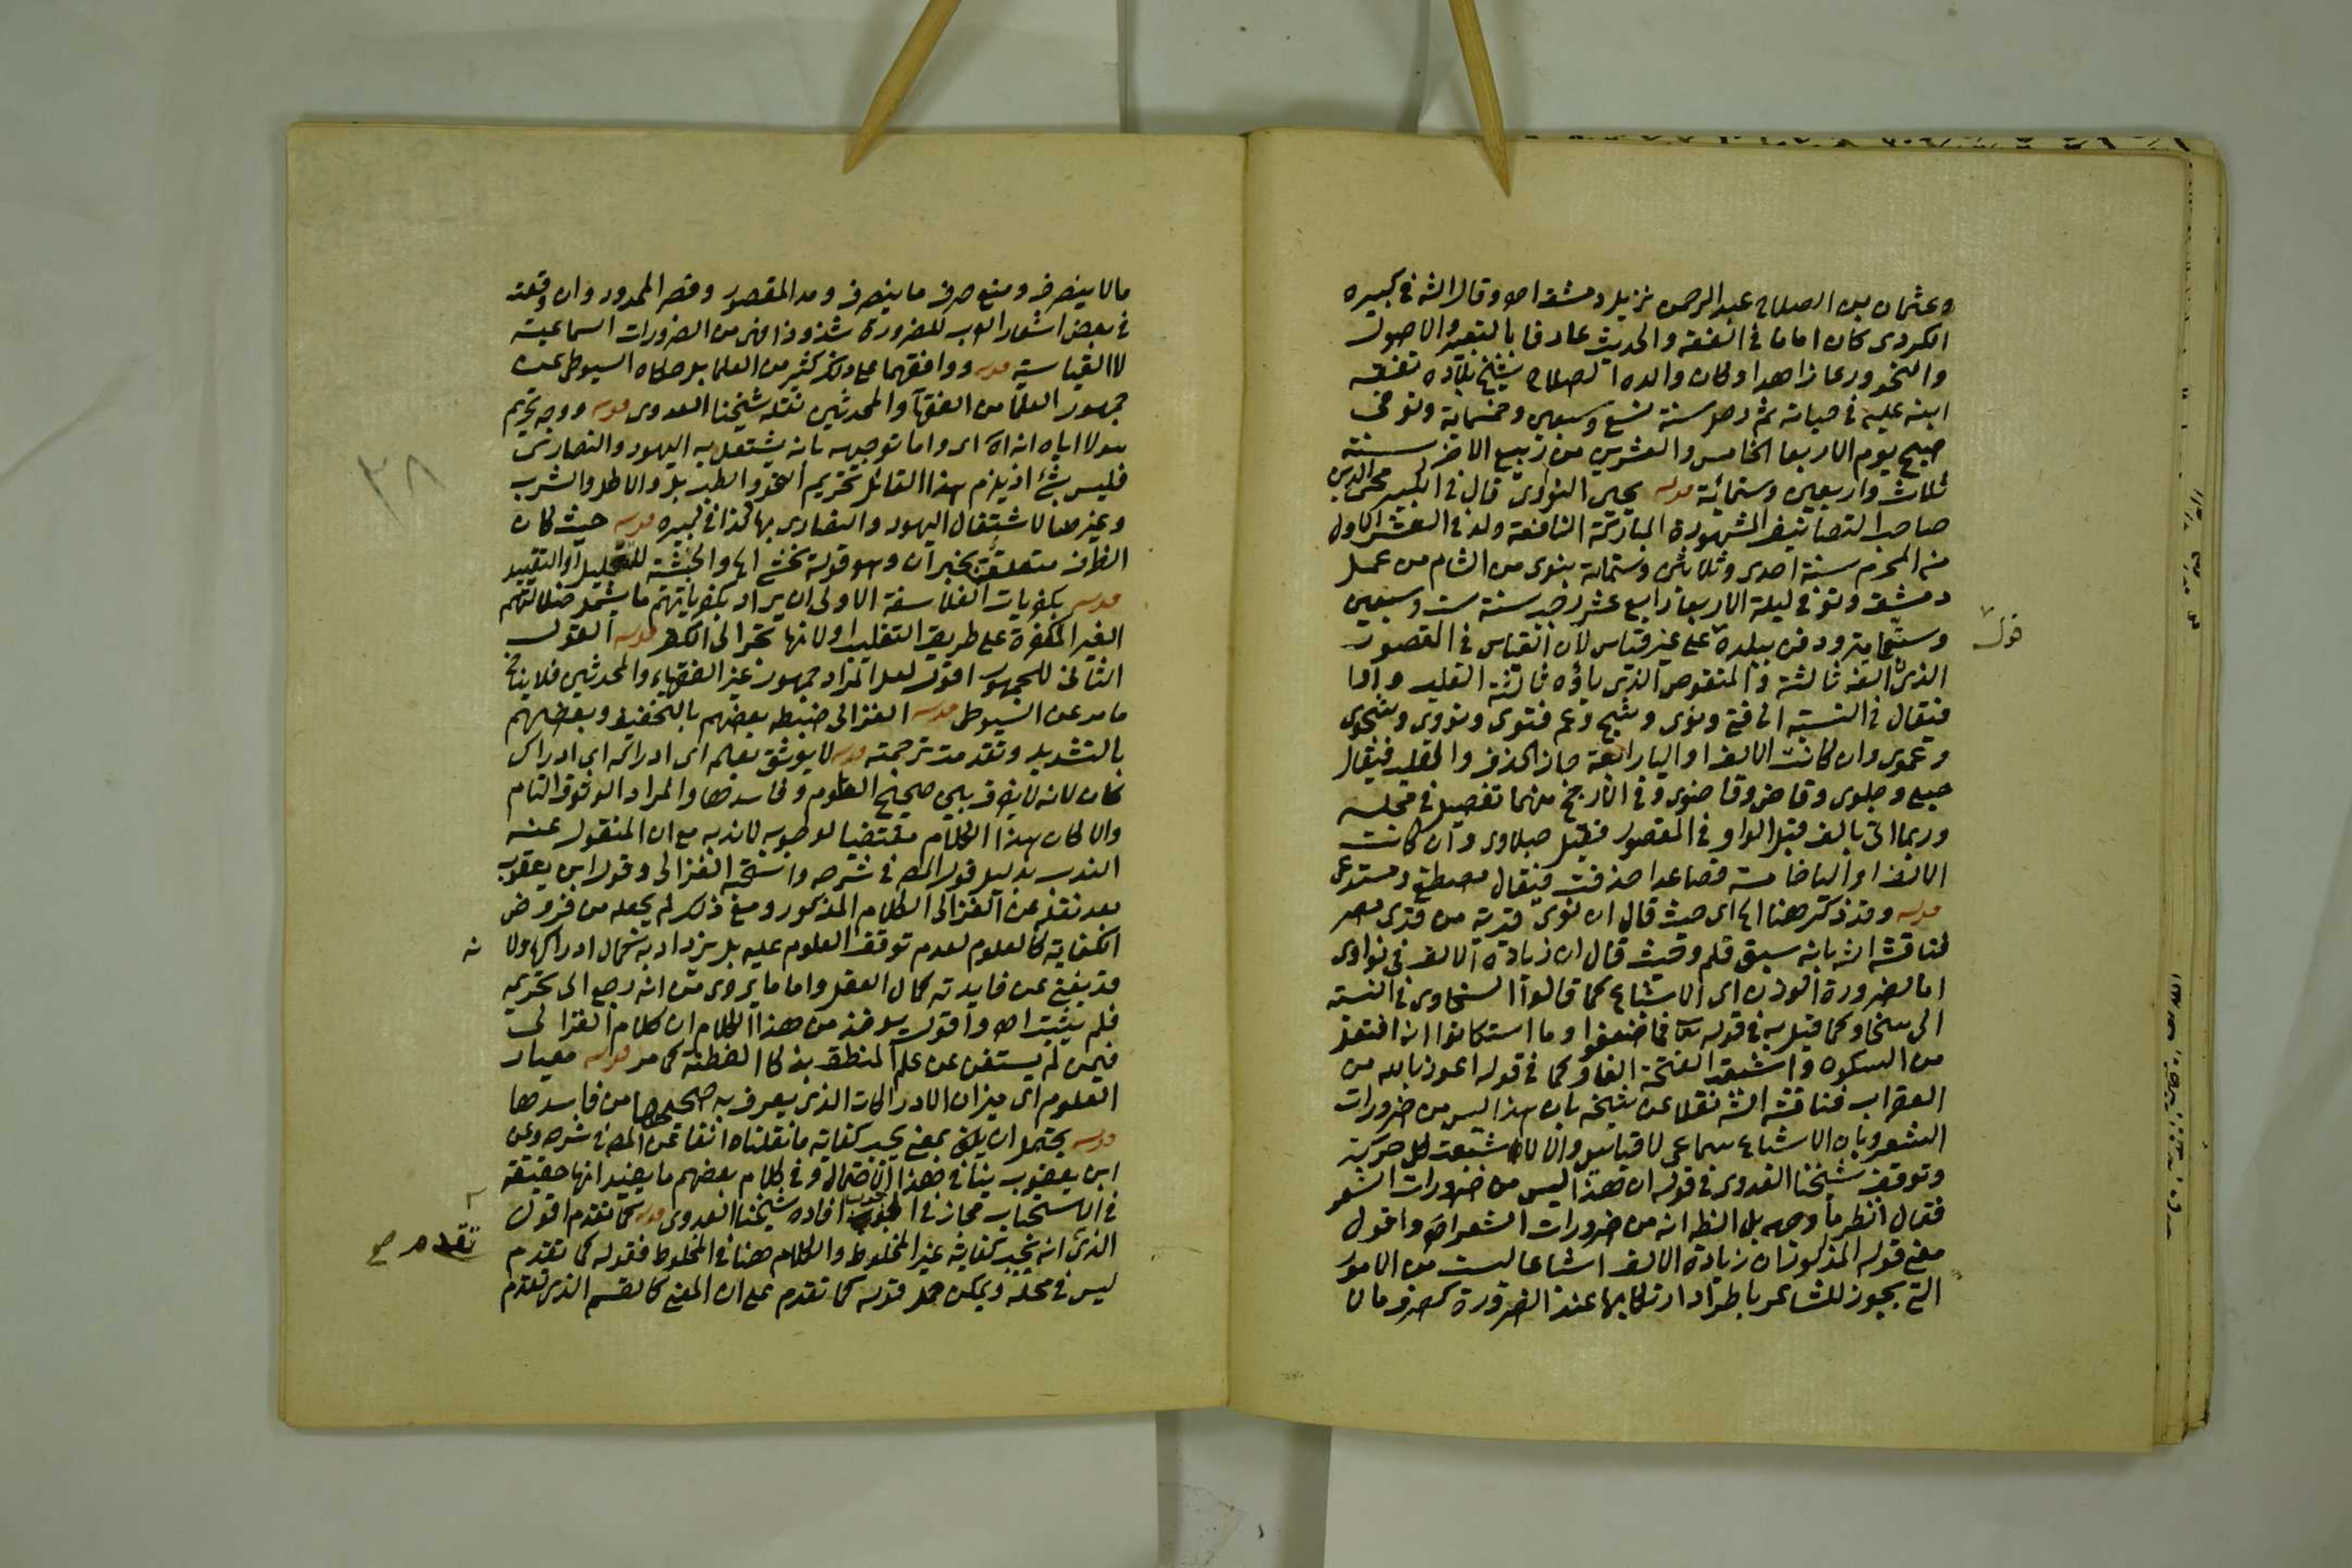 وعثمان بن الصلاح عبد الرحمن نزيل دمشق اه وقال الشه في كبيره
الكردى كان اماما في الفقه والحديث عارفا بالتفسير والاصول
والنحو ورعا زاهدا وكان والده الصلاح شيخ بلاده تفقه
ابنه عليه في حياته ثم رحل سنة تسع وسبعين وخمسماية وتوفى
صبح يوم الاربعا الخامس والعشرين من ربيع الاخر سنة
ثلاث واربعين وستمائة قوله يحيى النواوى قال في الكبير محى الدين
صاحب التصانيف المشهورة المباركة النافعة ولد في العشر الاول
من المحرم سنة احدى وثلاثين وستماية بنوى من الشام من عمل
دمشق وتوفى ليلة الاربعا رابع عشر رجب سنة ست وسبعين
وستماية ودفن ببلده على غير قياس لان القياس في المقصور
قول
الذى الفه ثالثة والمنقوص الذى ياؤه ثالثة القلب واوا
فيقال في النسبة الى فتى ونوى وشج وعم فتوى ونووى وشجوى
وعموى وان كانت الالف او اليا رابعة جاز الحذف والقلب فيقال
حبلى وحبلوى وقاض وقاضوى وفي الارجح منهما تفصيل في محله
وربما اتى بالف قبل الواو في المقصور فقيل حبلاوى وان كانت
الالف او اليا خامسة فصاعدا حذفت فيقال مصطفى ومستدعى
قوله وقد ذكر هنا الخ اى حيث قال ان نوى قرية من قرى مصر
فناقشه الشه بانه سبق قلم وحيث قال ان زيادة الالف في نواوى
اما لضرورة الوزن اى الاشباع كما قالوا السخاوى في النسبة
الى سخا وكما قيل به في قوله تعا فما ضعفوا وما استكانوا انه افتعل
من السكون واشبعت الفتحة الفا وكما في قوله اعوذ بالله من
العقراب فناقشه الشه نقلا عن شيخه بان هذا ليس من ضرورات
الشعر وبان الاشباع سماعى لا قياسى والا لاشبعت كل حركة
وتوقف شيخنا العدوى في قوله ان هذا ليس من ضرورات الشعر
فقال انظر ما وجهه بل الظ انه من ضرورات الشعر اه واقول
معنى قوله المذكور ان زيادة الالف اشباعا ليست من الامور
التى يجوز للشاعر باطراد ارتكابها عند الضرورة كصرف ما لا
مالا ينصرف ومنع صرف ما ينصرف ومد المقصور وقصر الممدود وان وقعت
في بعض اشعار العرب للضرورة شذوذا فهى من الضرورات السماعية
لا القياسية قوله ووافقهما على ذلك كثير من العلما بل حكاه السيوطى عن
جمهور العلما من الفقها والمحدثين نقله شيخنا العدوى قوله ووجه تحريم
هولا اياه انه الخ اى واما توجيهه بانه يشتغل به اليهود والنصارى
فليس بشئ اذ يلزم هذا القائل تحريم النحو والطب بل والاكل والشرب
٣٨
وغيرها لاشتغال اليهود والنصارى بها كذا في كبيره قوله حيث كان
الظرف متعلقة بخبر ان وهو قوله يخشى الخ والحيثية للتعليل او التقييد
قوله بكفريات الفلاسفة الاولى ان يراد بكفرياتهم ما يشمل ضلالتهم
الغير المكفرة على طريق التغليب او لانها تجر الى الكفر قوله القول
الثانى للجمهور اقول لعل المراد جمهور غير الفقهاء والمحدثين فلا ينافى
ما مر عن السيوطى قوله الغزالى ضبطه بعضهم بالتخفيف وبعضهم
بالتشديد وتقدمت ترجمته قوله لا يوثق بعلمه اى ادراكه اى ادراك
كان لانه لا يعرف بين صحيح العلوم وفاسدها والمراد الوثوق التام
والا لكان هذا الكلام مقتضيا لوجوبه لا ندبه مع ان المنقول عنه
الندب بدليل قول المص في شرحه واستحبه الغزالى وقول ابن يعقوب
بعد نقله عن الغزالى الكلام المذكور ومع ذلك لم يجعله من فروض
الكفاية كالعلوم لعدم توقف العلوم عليه بل يزداد به كمال ادراكها ولا
نه
قد يغنى عن فايدته كمال العقل واما ما يروى من انه رجع الى تحريمه
فلم يثبت اه واقول يوخذ من هذا الكلام ان كلام الغزالى
فيمن لم يستغن عن علم المنطق بذكا الفطنة كما مر قوله معيار
العلوم اى ميزان الادراكات الذى يعرف به صحيحها من فاسدها
قوله يحتمل ان ينبغى بمعنى يجب كفاية ما نقلناه انفا عن المص في شرحه وعن
ابن يعقوب ينافى هذا الاحتمال وفي كلام بعضهم ما يفيد انها حقيقة
في الاستحباب مجاز في الوجوب افاده شيخنا العدوى قوله كما تقدم اقول
تقدم صح
الذى انه يجب كفاية غير المخلوط والكلام هنا في المخلوط فقوله كما تقدم
ليس في محله ويمكن حمل قوله كما تقدم على ان المعنى كالقسم الذى تقدم